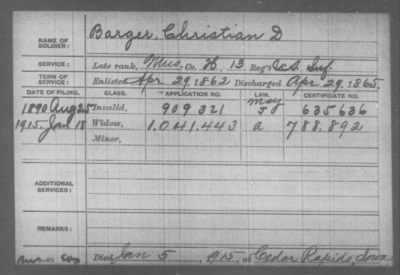 NAME OF SOLDIER: Barger, Christian D
SERVICE: Late rank, Mus, Co. H, 13 Reg't U.S. Inf.
TERM OF SERVICE: Enlisted Apr 29, 1862 Discharged Apr. 29, 1865.
DATE OF FILING. CLASS. APPLICATION NO. LAW. CERTIFICATE NO.
1890 Aug 25 Invalid, 909 321 May J 635636
1915. Jan 18 Widow, 1.041.443 a 788.892
Minor,
ADDITIONAL SERVICES:
REMARKS:
Died Jan 5, 1915, at Cedar Rapids, Iowa